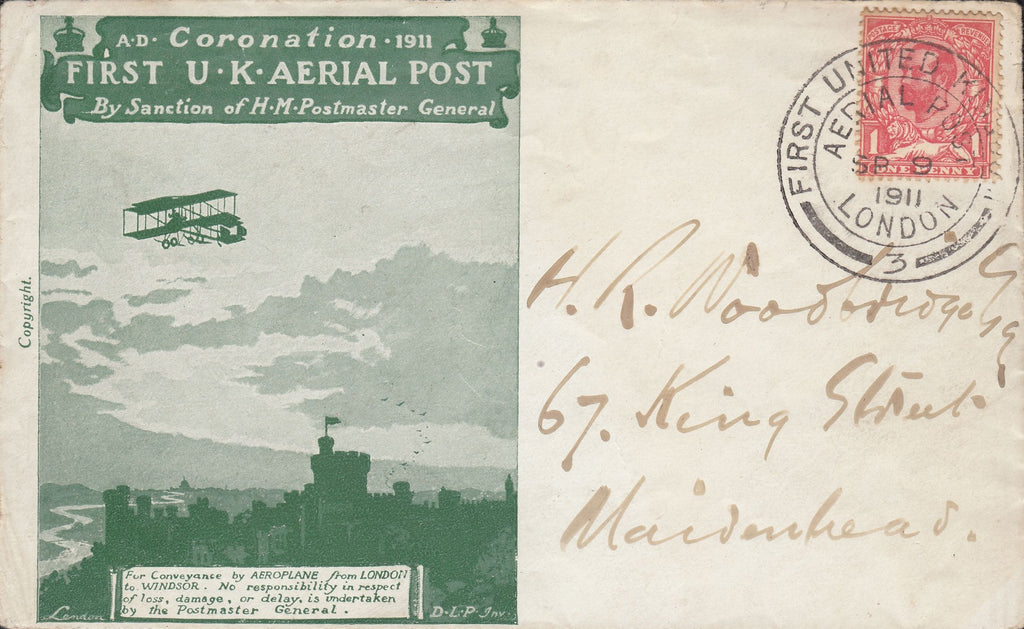 A·D· Coronation · 1911
FIRST U·K·AERIAL POST
By Sanction of H·M·Postmaster General
Copyright.
For Conveyance by AEROPLANE from LONDON
to WINDSOR. No responsibility in respect
of loss, damage, or delay, is undertaken
by the Postmaster General.
London
D·L·P·Inv.
POSTAGE REVENUE
1 1
ONE PENNY
FIRST UNITED
AERIAL POST
SP 9
1911
LONDON
3
H. R. Woodbridge Esq
67. King Street
Maidenhead.